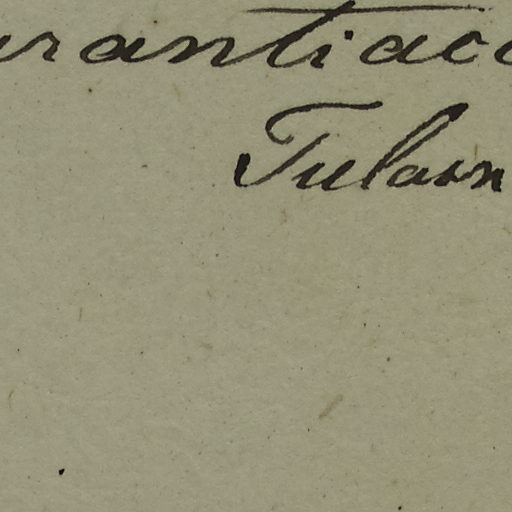 urantiaco
Tulasn